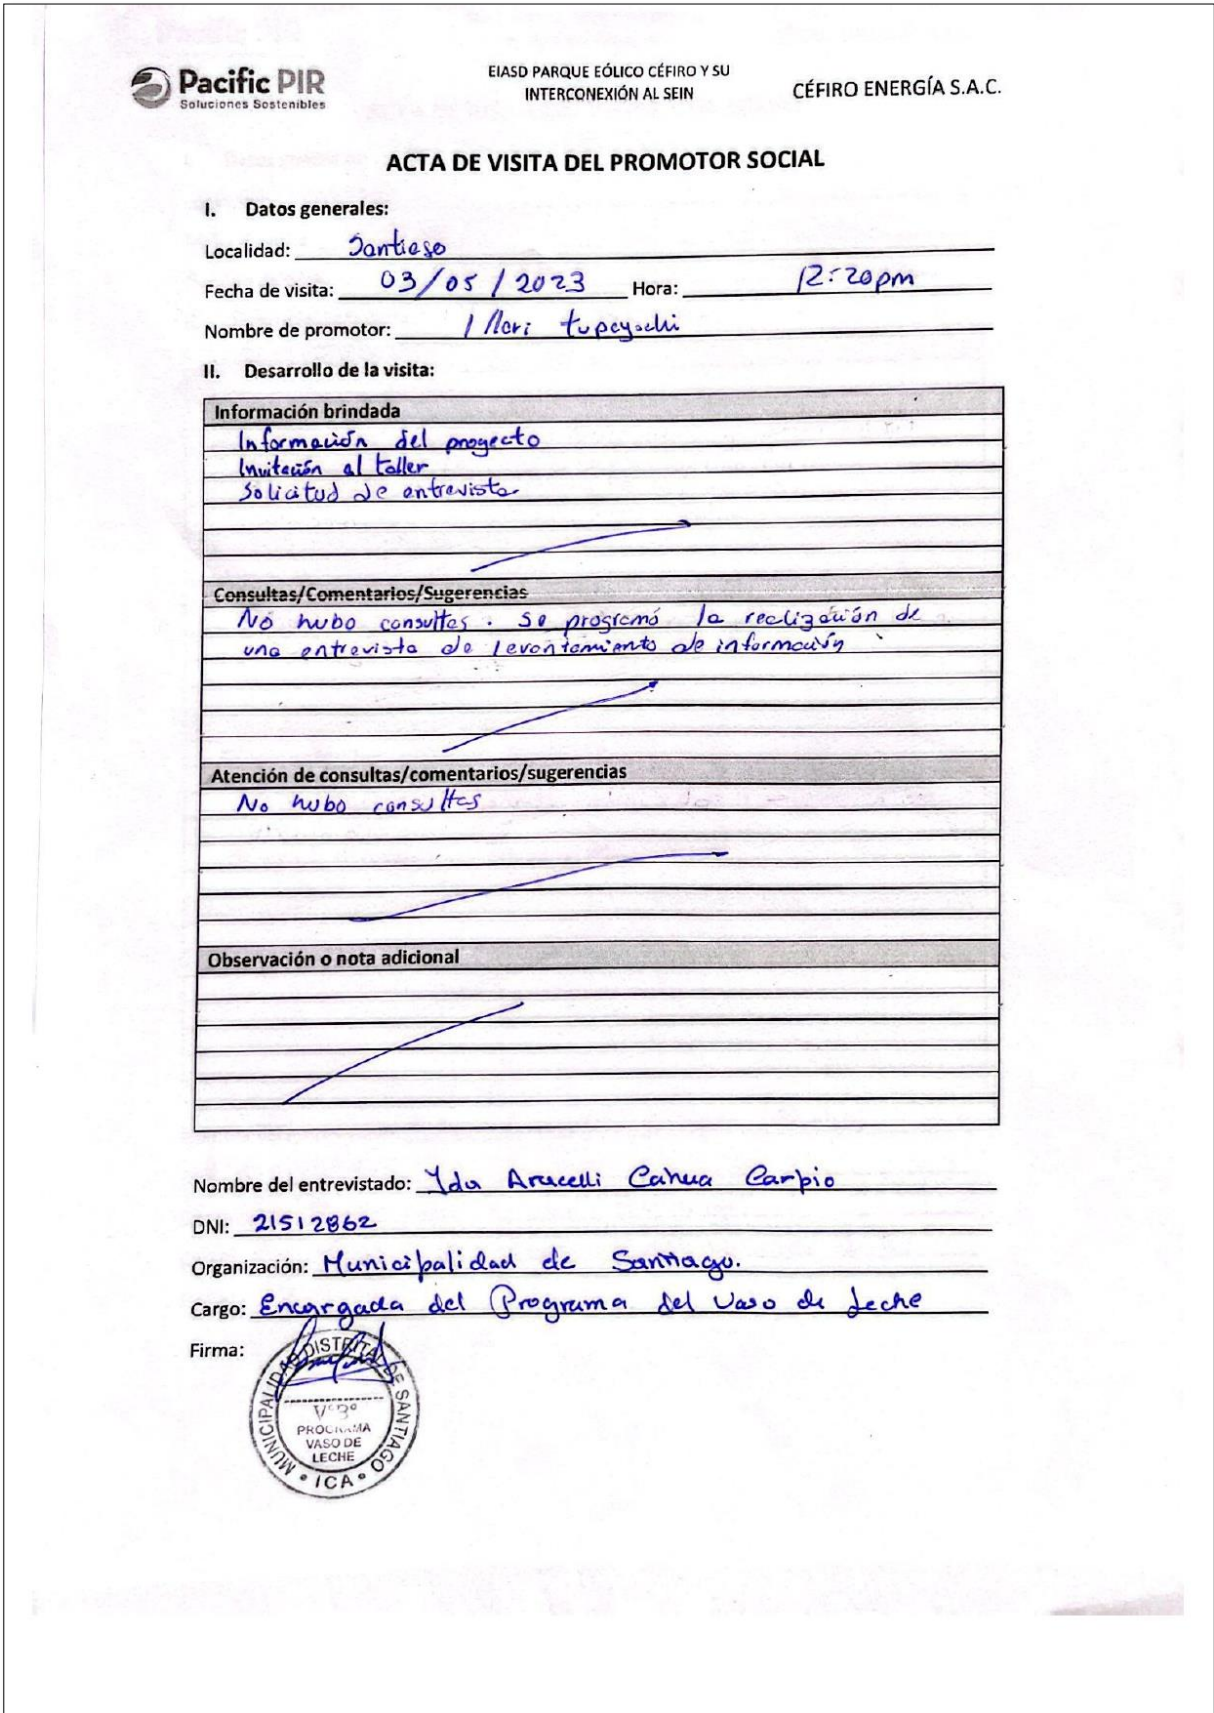 Pacific PIR
Soluciones Sostenibles
EIASD PARQUE EÓLICO CÉFIRO Y SU
INTERCONEXIÓN AL SEIN
CÉFIRO ENERGÍA S.A.C.
ACTA DE VISITA DEL PROMOTOR SOCIAL
I. Datos generales:
Localidad: Santiago
Fecha de visita: 03/05/2023 Hora: 12:20pm
Nombre de promotor:
II. Desarrollo de la visita:
Información brindada
Información del proyecto
Invitación al taller
Solicitud de entrevista
Consultas/Comentarios/Sugerencias
No hubo consultas. Se programó la realización de
una entrevista de levantamiento de información
Atención de consultas/comentarios/sugerencias
No hubo consultas
Observación o nota adicional
Nombre del entrevistado: Yda Aracelli Cahua Carpio
DNI: 21512862
Organización: Municipalidad de Santiago.
Cargo: Encargada del Programa del Vaso de Leche
Firma:
MUNICIPALIDAD DISTRITAL DE SANTIAGO
V°B°
PROGRAMA
VASO DE
LECHE
• ICA •